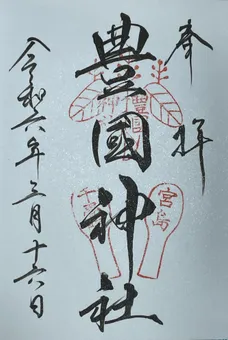 奉拝
豊國神社
令和六年三月十六日
宮島